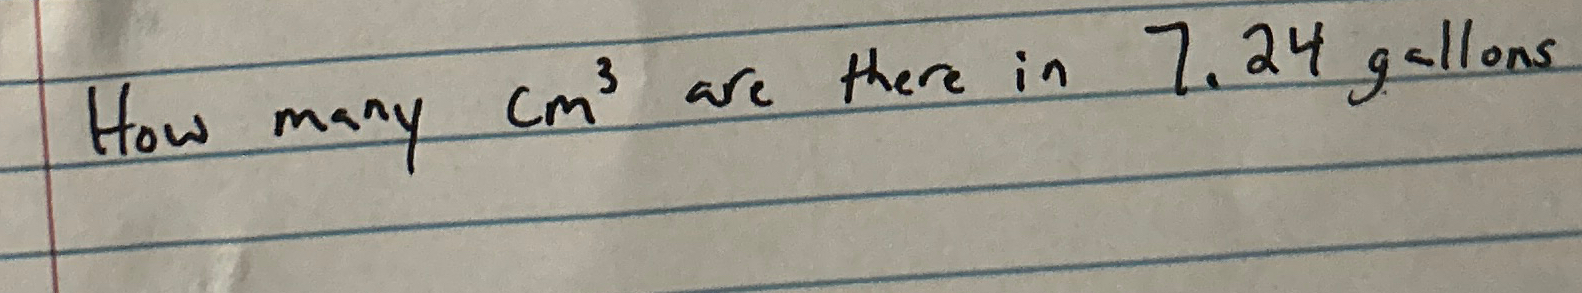 How many cm³ are there in 7.24 gallons